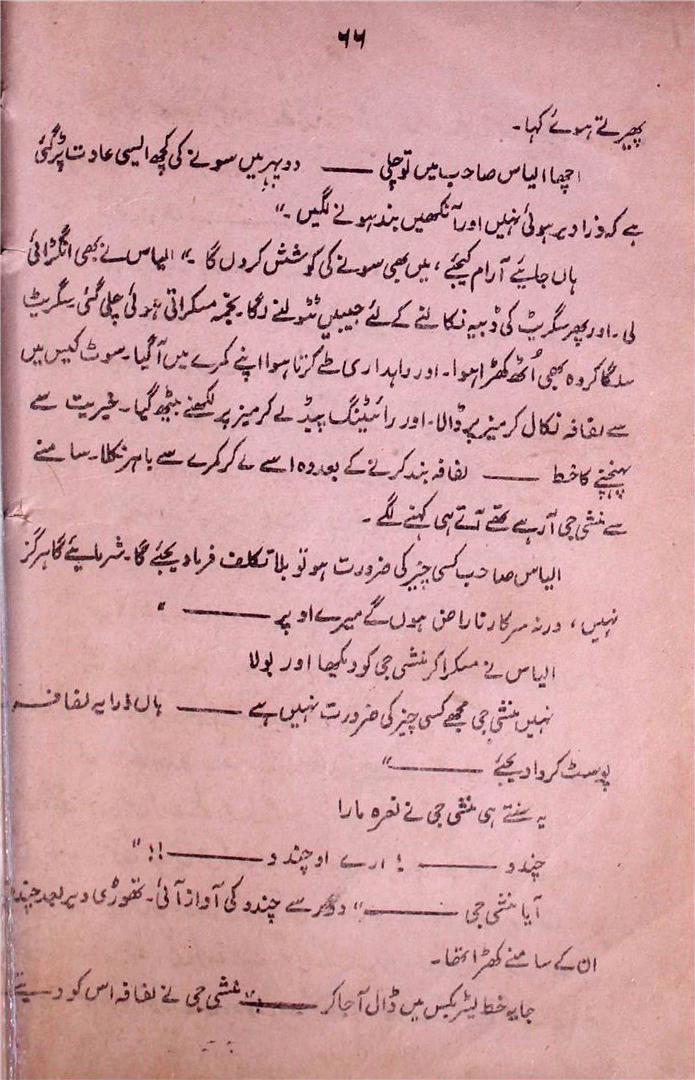 ۶۶
پھیرتے ہوئے کہا۔
اچھا الیاس صاحب میں تو چلی ـــــــ دوپہر میں سونے کی کچھ ایسی عادت پڑ گئی
ہے کہ ذرا دیر ہوئی نہیں اور آنکھیں بند ہونے لگیں ۔"
ہاں جایئے آرام کیجئے ، میں بھی سونے کی کوشش کروں گا ۔" الیاس نے بھی انگڑائی
لی ۔ اور پھر سگریٹ کی ڈبیہ نکالنے کے لئے جیبیں ٹٹولنے لگا ۔ نجمہ مسکراتی ہوئی چلی گئی ۔ سگریٹ
سلگا کر وہ بھی اُٹھ کھڑا ہوا ۔ اور راہداری طے کرتا ہوا اپنے کمرے میں آگیا ۔ سوٹ کیس میں
سے لفافہ نکال کر میز پر ڈالا ۔ اور رائیٹنگ پیڈ لے کر میز پر لکھنے بیٹھ گیا ۔ خیریت سے
پہنچنے کا خط ـــــــ لفافہ بند کرنے کے بعد وہ اسے لے کر کمرے سے باہر نکلا ۔ سامنے
سے منشی جی آرہے تھے آتے ہی کہنے لگے ۔
الیاس صاحب کسی چیز کی ضرورت ہو تو بلا تکلف فرما دیجئے گا ۔ شرمایئے گا ہرگز
نہیں ، ورنہ سرکار ناراض ہوں گے میرے اوپر ـــــــ "
الیاس نے مسکرا کر منشی جی کو دیکھا اور بولا
نہیں منشی جی مجھے کسی چیز کی ضرورت نہیں ہے ـــــــ ہاں ذرا یہ لفافہ
پوسٹ کروا دیجئے ـــــــ "
یہ سنتے ہی منشی جی نے نعرہ مارا
چندو ـــــــ ! ارے او چندو ـــــــ !! "
آیا منشی جی ـــــــ " دور سے چندو کی آواز آئی ۔ تھوڑی دیر بعد چندو
ان کے سامنے کھڑا تھا ۔
جا یہ خط لیٹر بکس میں ڈال آ جا کر ـــــــ " منشی جی نے لفافہ اس کو دیتے